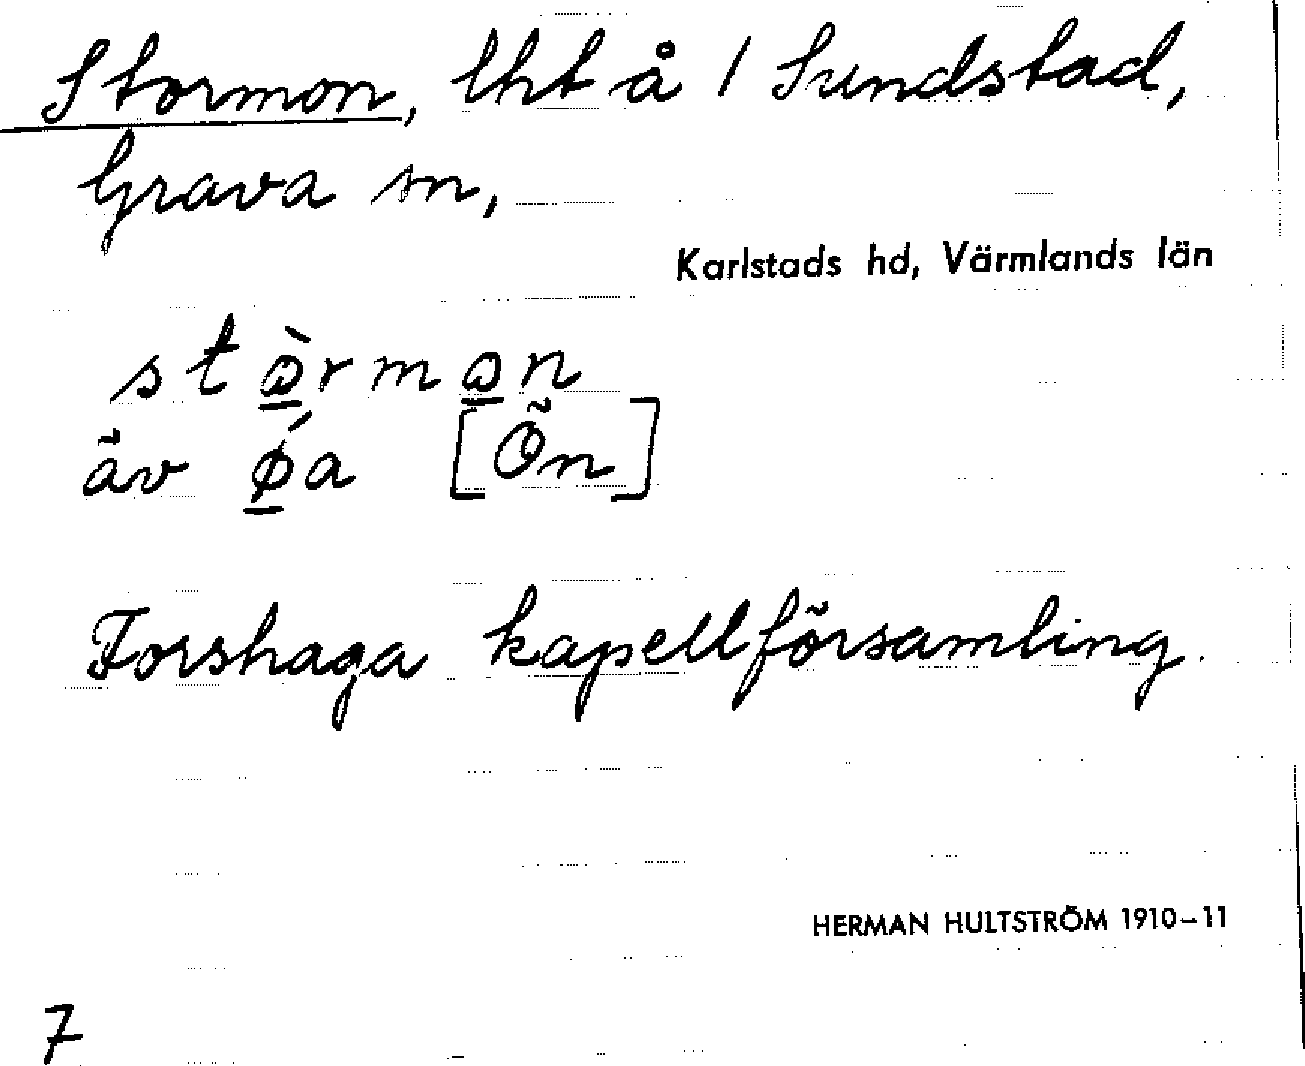 Stormon, lht å 1 Sundstad,
Grava sn,
Karlstads hd, Värmlands län
äv øa [Ön]
Forshaga kapellförsamling.
HERMAN HULTSTRÖM 1910–11
7